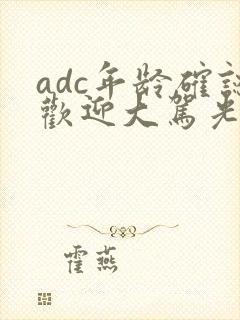 adc年龄確認
歡迎大駕光
霍燕